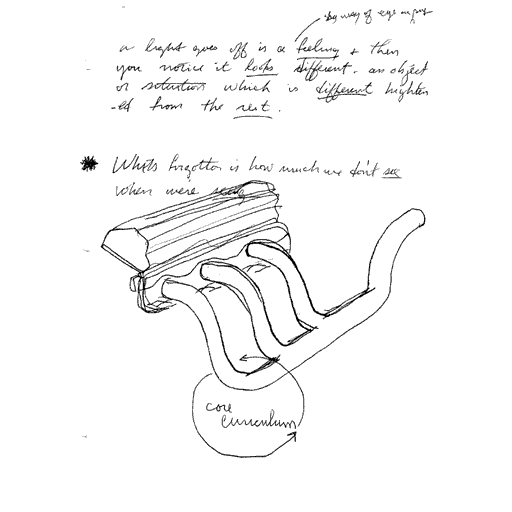 by way of eye
a light goes off is a feeling & then
you notice it looks different. an object
or situation which is different highten
-ed from the rest.
* Whats forgotten is how much we don't see
when were seeing
core
curriculum